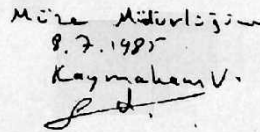 Müze Müdürlüğün
8.7.1985
Kaymakam V.